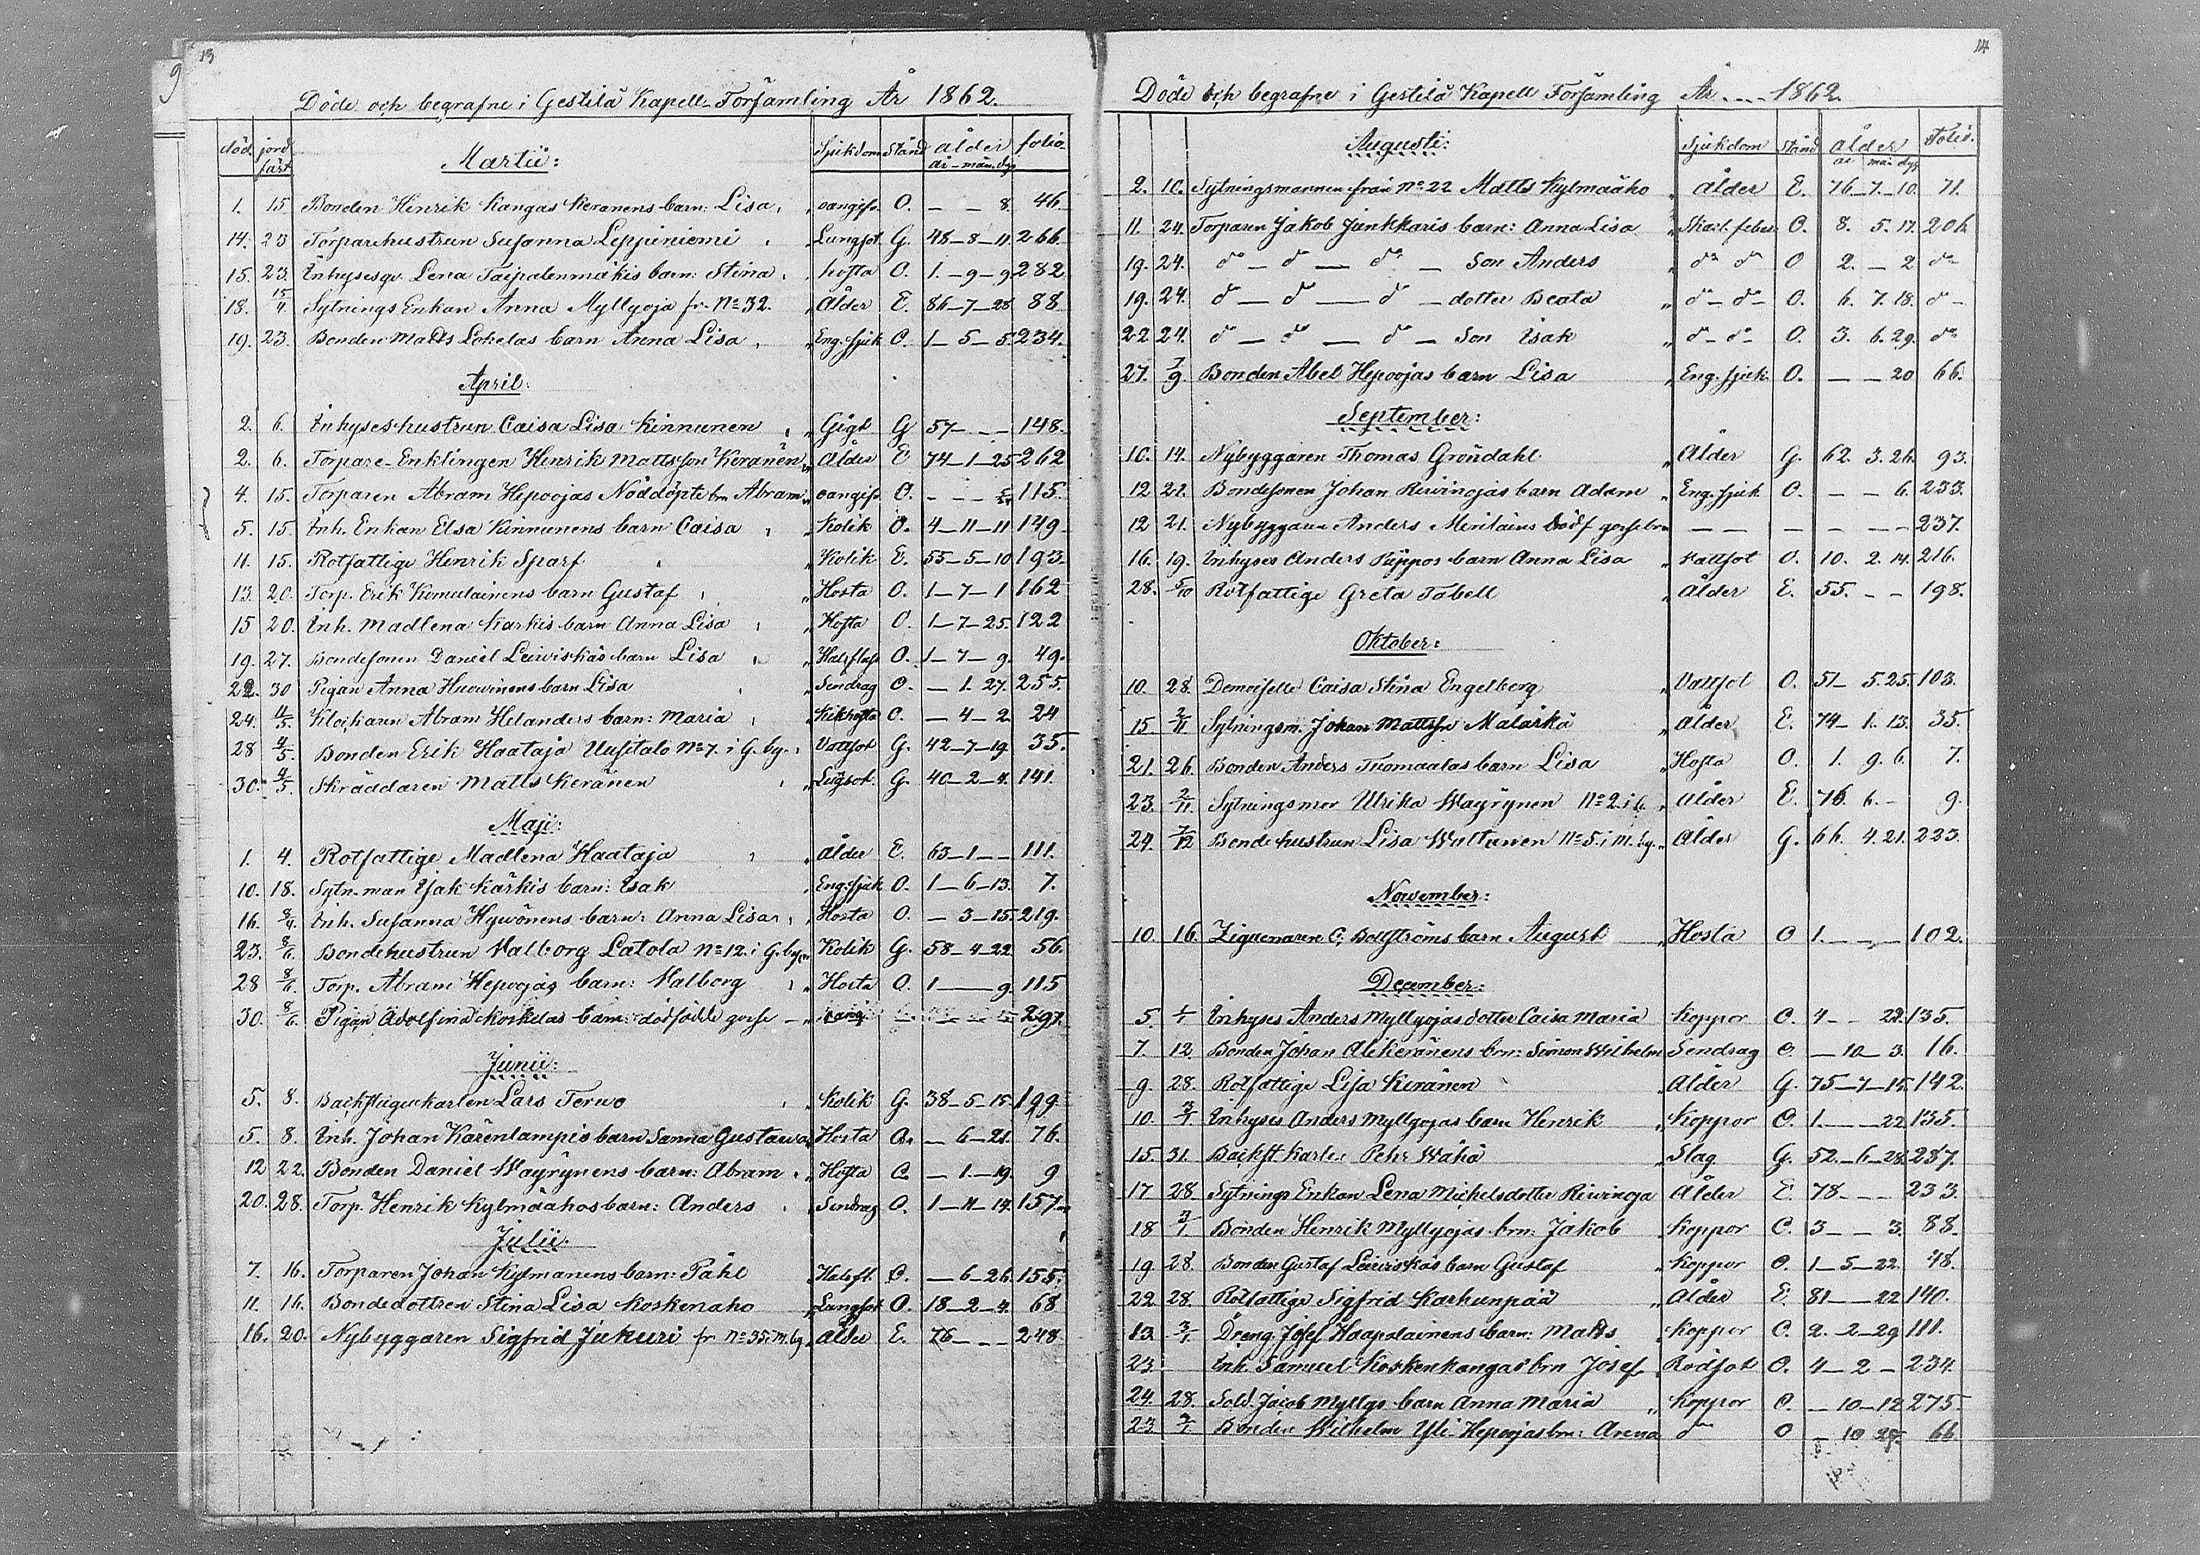 13
9
Döde och begrafne i Gestilä Kapell-Församling År 1862.
död jord fäst Martii: Sjukdom Stånd ålder år-mån.dgr folio
1. 15 Bonden Hinrik Kangas Keränens barn: Lisa, oangifv. O. — — 8. 46.
14. 23 Torparehustrun Susanna Leppiniemi Lungsot. G. 48-8-11 266.
15. 23. Inhysesqv. Lena Taipalenmäkis barn: Stina, hosta O. 1.-9-9 282
18. 15/4 Sytnings Enkan Anna Myllyoja fr. No 32. Ålder E. 86-7-28 88.
19. 23. Bonden Matts Lokelas barn Anna Lisa, Eng. sjuk O. 1-5-5 234.
April:
2. 6. Inhyseshustrun Caisa Lisa Kinnunen Gigt G 57- - - 148.
2. 6. Torpare-Enklingen Henrik Mattsson Keränen Ålder E 74-1-25 262
4. 15. Torparen Abram Hepoojas Nöddöpte bn Abram oangifv O. - - - 115.
5. 15. Inh. Enkan Elsa Kinnunens barn Caisa Kolik O. 4-11-11 149.
11. 15. Rotfattige Henrik Sparf Kolik E. 55-5-10 193.
13. 20. Torp. Erik Komulainens barn Gustaf Hosta O. 1-7-1 162
15 20. Inh. Madlena Karkis barn Anna Lisa Hosta O. 1-7-25. 122
19. 27. Bondesonen Daniel Leiviskäs barn Lisa O. 1-7-9. 49.
22. 30 Pigan Anna Huovinens barn Lisa Sendrag O. - 1. 27. 255.
24. 11/5. Klockaren Abram Helanders barn: Maria Kikhosta O. -4-2 24
28 4/5. Bonden Erik Haataja Uusitalo No 7. i G. by. Vattsot G. 42-7-19. 35.
30. 4/5. Skräddaren Matts Keränen Lugsot. G. 40-2-4. 141.
Maji:
1. 4. Rotfattige Madlena Haataja Ålder E. 63-1-- 111.
10. 18. Sytn.man Isak Kärkis barn: Isak Eng. sjuk O. 1-6-13. 7.
16. Inh. Susanna Hyvönens barn: Anna Lisa, Hosta O. -3-15. 219.
23. 8/6. Bondehustrun Valborg Latola No 12. i G. by Kolik G. 58-4-22 56.
28 8/6. Torp. Abram Hepoojas barn: Valborg Hosta O. 1 — 9. 115
30. 8/6. Pigan Adolfina Koskelas barn: dödfödde gosse 297.
Junii:
5. 8. Backstugukarlen Lars Tervo Kolik G. 38-5-15. 199
5. 8. Inh. Johan Kärenlampis barn Sanna Gustava Hosta O. -6-21. 76.
12 22. Bonden Daniel Wäyrynens barn: Abram Hosta O. -1-19. 9
20. 28. Torp. Henrik Kylmäahos barn: Anders Sendrag O. 1-11-14. 157.
Julii:
7. 16. Torparen Johan Kylmänens barn: Påhl Halsfl. O. -6-26. 155.
11. 16. Bondedottren Stina Lisa Koskenaho Lungsot O. 18-2-4. 68
16. 20. Nybyggaren Sigfrid Jukuri fr. No 35 i M. by Ålder E. 76- - - 248
14
Döde och begrafne i Gestilä Kapell Församling År .... 1862.
Augusti: Sjukdom Stånd ålder år mån dgr Folio.
2. 10. Sytningsmannen från No 22 Matts Kylmäaho Ålder E. 76-7-10. 71.
11. 24. Torparen Jakob Junkkaris barn: Anna Lisa Skarl. feber O. 8. 5. 17. 206
19. 24. do — do — do — Son Anders do do O 2. — 2 do
19. 24. do — do — do — dotter Beata do — do O. 6. 7. 18. do
22 24. do — do — do — Son Isak do — do O. 3. 6. 29. do
27. 7/9. Bonden Abel Hepoojas barn Lisa Eng. sjuk. O. — — 20 66.
September:
10. 14. Nybyggaren Thomas Gröndahl Ålder G. 62. 3. 26. 93.
12 21. Bondesonen Johan Reivinojas barn Adam Eng. sjuk O. — — 6. 233.
12 21. Nybyggaren Anders Meriläins dödf gosse brn — — — — — — 237.
16. 19. Inhyses Anders Piippos barn Anna Lisa Vattsot O. 10. 2. 14. 216.
28. 5/10 Rotfattige Greta Tabell Ålder E. 55. — — 198.
Oktober:
10. 28. Demoiselle Caisa Stina Engelberg Vattsot O. 51- 5. 25. 103.
15. 2/11 Sytningsm. Johan Mattsn Malaska Ålder E. 74- 1. 13. 35.
21. 26. Bonden Anders Tuomaalas barn Lisa Hosta O. 1. 9. 6. 7.
23. 2/11. Sytningsmor Ulrika Wäyrynen No 2. i G. Ålder E. 76. 6. - 9.
24. 7/12 Bondehustrun Lisa Wultunen No 5. i M. by. Ålder G. 66. 4. 21. 223.
November:
10. 16. Ziguenaren C. Bollströms barn August Hosta O 1. — — 102.
December:
5. 1/1 Inhyses Anders Myllyojas dotter Caisa Maria Koppor O. 4- - 22. 135.
7. 12. Bonden Johan Alekeränens brn: Simon Wilhelm Sendrag O. — 10- 3. 16.
9. 28. Rotfattige Lisa Keränen Ålder G. 75-7-15. 142.
10. 3/1 Inhyses Anders Myllyojas barn Henrik Koppor O. 1. — 22 135.
15. 31. Backst Karlen Pehr Wähä Slag G. 52.-6-28. 287.
17 28 Sytnings Enkan Lena Michelsdotter Reivinoja Ålder E. 78- - - 233.
18 3/1 Bonden Henrik Myllyojas brn: Jakob Koppor O. 3 — 3. 88.
19. 28. Bonden Gustaf Leiviskäs barn Gustaf Koppor O. 1-5-22. 48.
22. 28. Rotfattige Sigfrid Karhunpää Ålder E. 81- - 22 140.
13. 3/1. Dreng Josef Haapalainens barn: Matts Koppor O. 2. 2-29 111.
23. Inh. Samuel Koskenkangas brn Josef Rödsot O. 4-2- 234.
24. 28. Sold. Jacob Myllys barn Anna Maria Koppor O. — 10-12 275.
23. Bonden Wilhelm Yli-Hepoojas brn: do O — 10 66